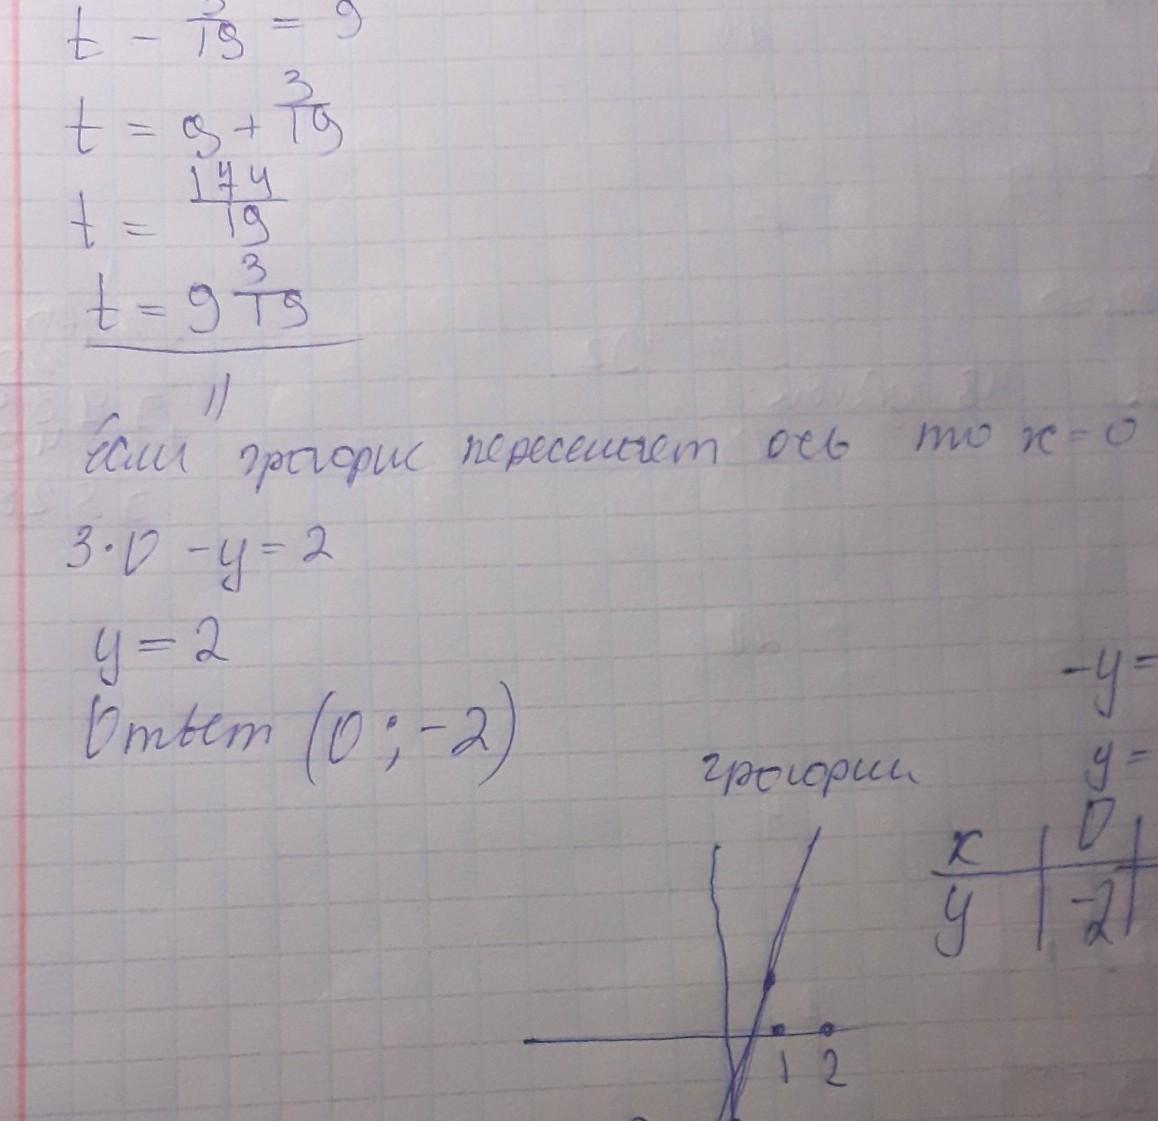 t - 3/19 = 9
t = 9 + 3/19
t = 174/19
t = 9 3/19
если график пересекает ось то x = 0
3·0 - y = 2
y = 2
Ответ (0 ; -2)
-y =
y =
график
x | 0 |
y | -2 |
1 2